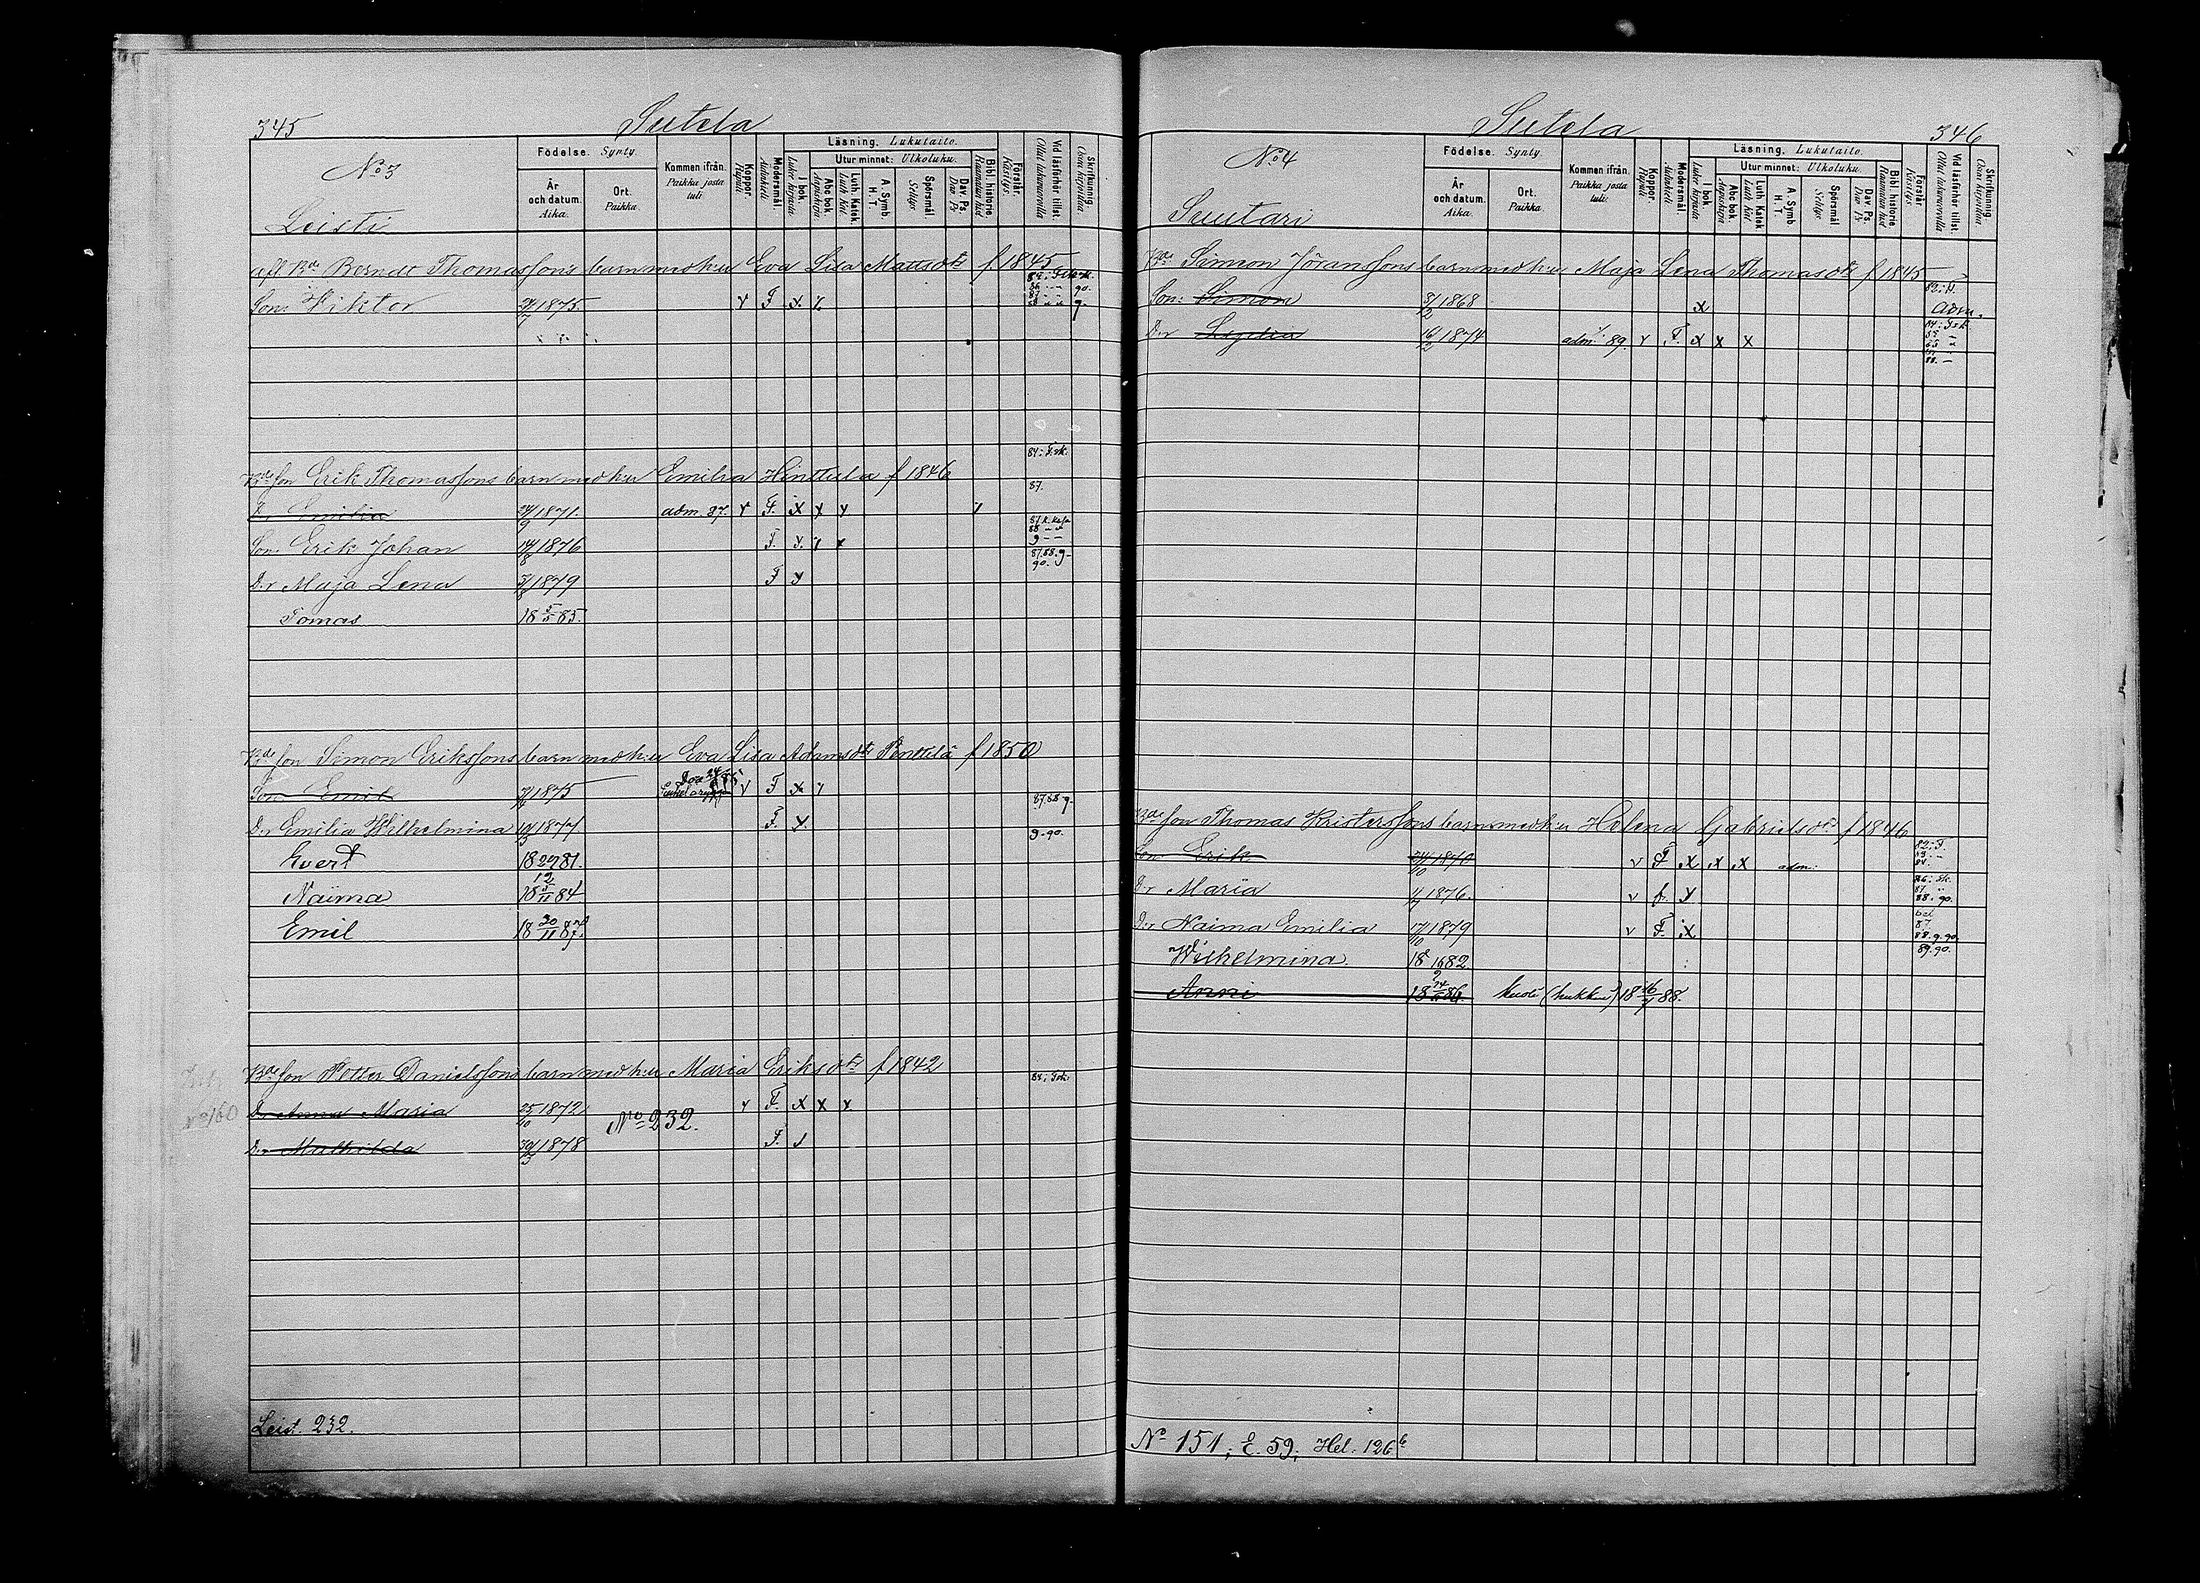 345
Sutela
No 3
Leisti
Födelse. Synty.
År och datum. Aika.
Ort. Paikka.
Kommen ifrån. Paikka josta tuli
Koppor. Rupuli
Modersmål. Äidinkieli
Läsning. Lukutaito.
I bok. Lukee kirjasta
Utur minnet: Ulkoluku.
Abc bok. Aapiskirja
Luth. Katek. Luth Kat.
A. Symb. H. T.
Spörsmål Selitys.
Dav. Ps. Dav Ps
Bibl. historie Raamatun hist
Förstår. Käsitys.
Vid läsförhör tillst. Ollut lukuvuorolla
Skrifkunnig. Osaa kirjoittaa
afl. Bde Berndt Thomassons barn med h:u Eva Lisa Mattsdtr f 1845
Son: Wiktor 29/7 1875. v F x. x
Bde son Erik Thomassons barn med h:u Emilia Hinttula f 1846
84: F.sk.
87.
D:r Emilia 24/9 1871. adm. 87. v F. x x x
Son. Erik Johan 14/8 1876 F. x.
D:r Maja Lena 1879 F x
87.88.9-90.
Tomas 18 5/5 85.
Bde son Simon Erikssons barn med h:u Eva Lisa Adamsdtr Penttilä f 1850
Son Emil 1875 v F x
D:r Emilia Wilhelmina 19/3 1877 F. x.
87.88 9.
9-90.
Evert 18 29/12 81.
Naima 18 5/11 84
Emil 18 30/11 87.
Bde son Petter Danielssons barn med h:u Maria Eriksdtr f 1842
84; F.sk.
D:r Anna Maria 25/10 1872 v F. x x x
No 232.
D:r Mathilda 30/3 1878 F. x
No 160
Leist. 232.
Sutela
346
No 4
Suutari
Födelse. Synty.
År och datum. Aika.
Ort. Paikka.
Kommen ifrån. Paikka josta tuli:
Koppor. Rupuli
Modersmål. Äidinkieli
Läsning. Lukutaito.
I bok. Lukee kirjasta
Utur minnet: Ulkoluku.
Abc bok. Aapiskirja
Luth. Katek Luth Kat.
A. Symb. H. T.
Spörsmål Selitys.
Dav. Ps. Dav Ps
Bibl. historie Raamatun hist
Förstår. Käsitys.
Vid läsförhör tillst. Ollut lukuvuorolla
Skrifkunnig. Osaa kirjoittaa
Bde Simon Jöranssons barn med h:u Maja Lena Thomasdtr f 1845
Son: Simon 3/2 1868 x Adm.
D:r Lydia 16/2 1874 adm. 89. v F. x x x
Bde son Thomas Kristerssons barn med h:u Helena Gabrielsdtr f 1846
Son Erik 24/10 1870 v F x x x adm:
D:r Maria 1876. v f. x
D:r Naima Emilia 17/10 1879 v F. x
88.9.90
Wilhelmina. 18 16/9 82
89.90.
Anni 18 86. kuoli (hukkui) 18 16/7 88.
No 151; E. 59; Hel. 126